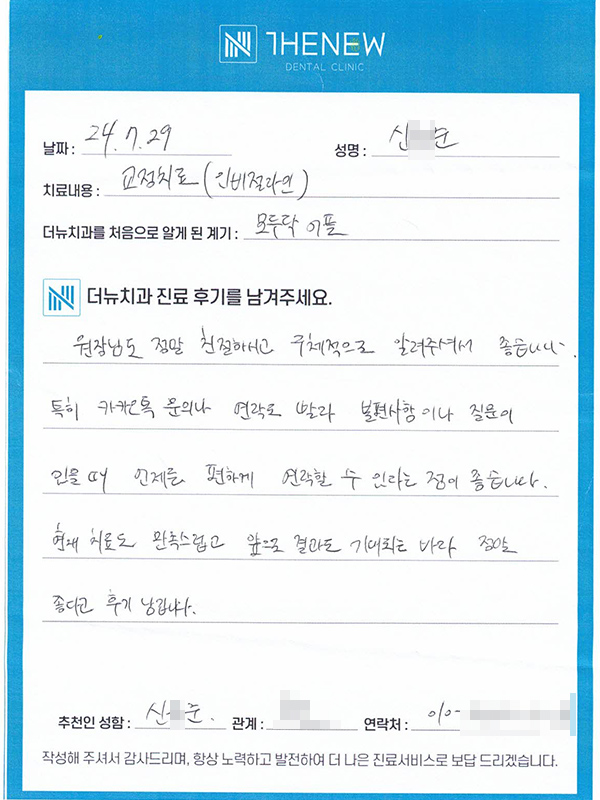 THENEW
DENTAL CLINIC
날짜 : 24. 7. 29 성명 : 신 준
치료내용 : 교정치료 (인비절라인)
더뉴치과를 처음으로 알게 된 계기 : 모두닥 어플
더뉴치과 진료 후기를 남겨주세요.
원장님도 정말 친절하시고 구체적으로 알려주셔서 좋습니다.
특히 카카오톡 문의나 연락도 빨라 불편사항이나 질문이
있을 때 언제든 편하게 연락할 수 있다는 점이 좋습니다.
현재 치료도 만족스럽고 앞으로 결과도 기대되는 바라 정말
좋다고 후기 남깁니다.
추천인 성함 : 신 준. 관계 : 연락처 : 010-
작성해 주셔서 감사드리며, 항상 노력하고 발전하여 더 나은 진료서비스로 보답 드리겠습니다.